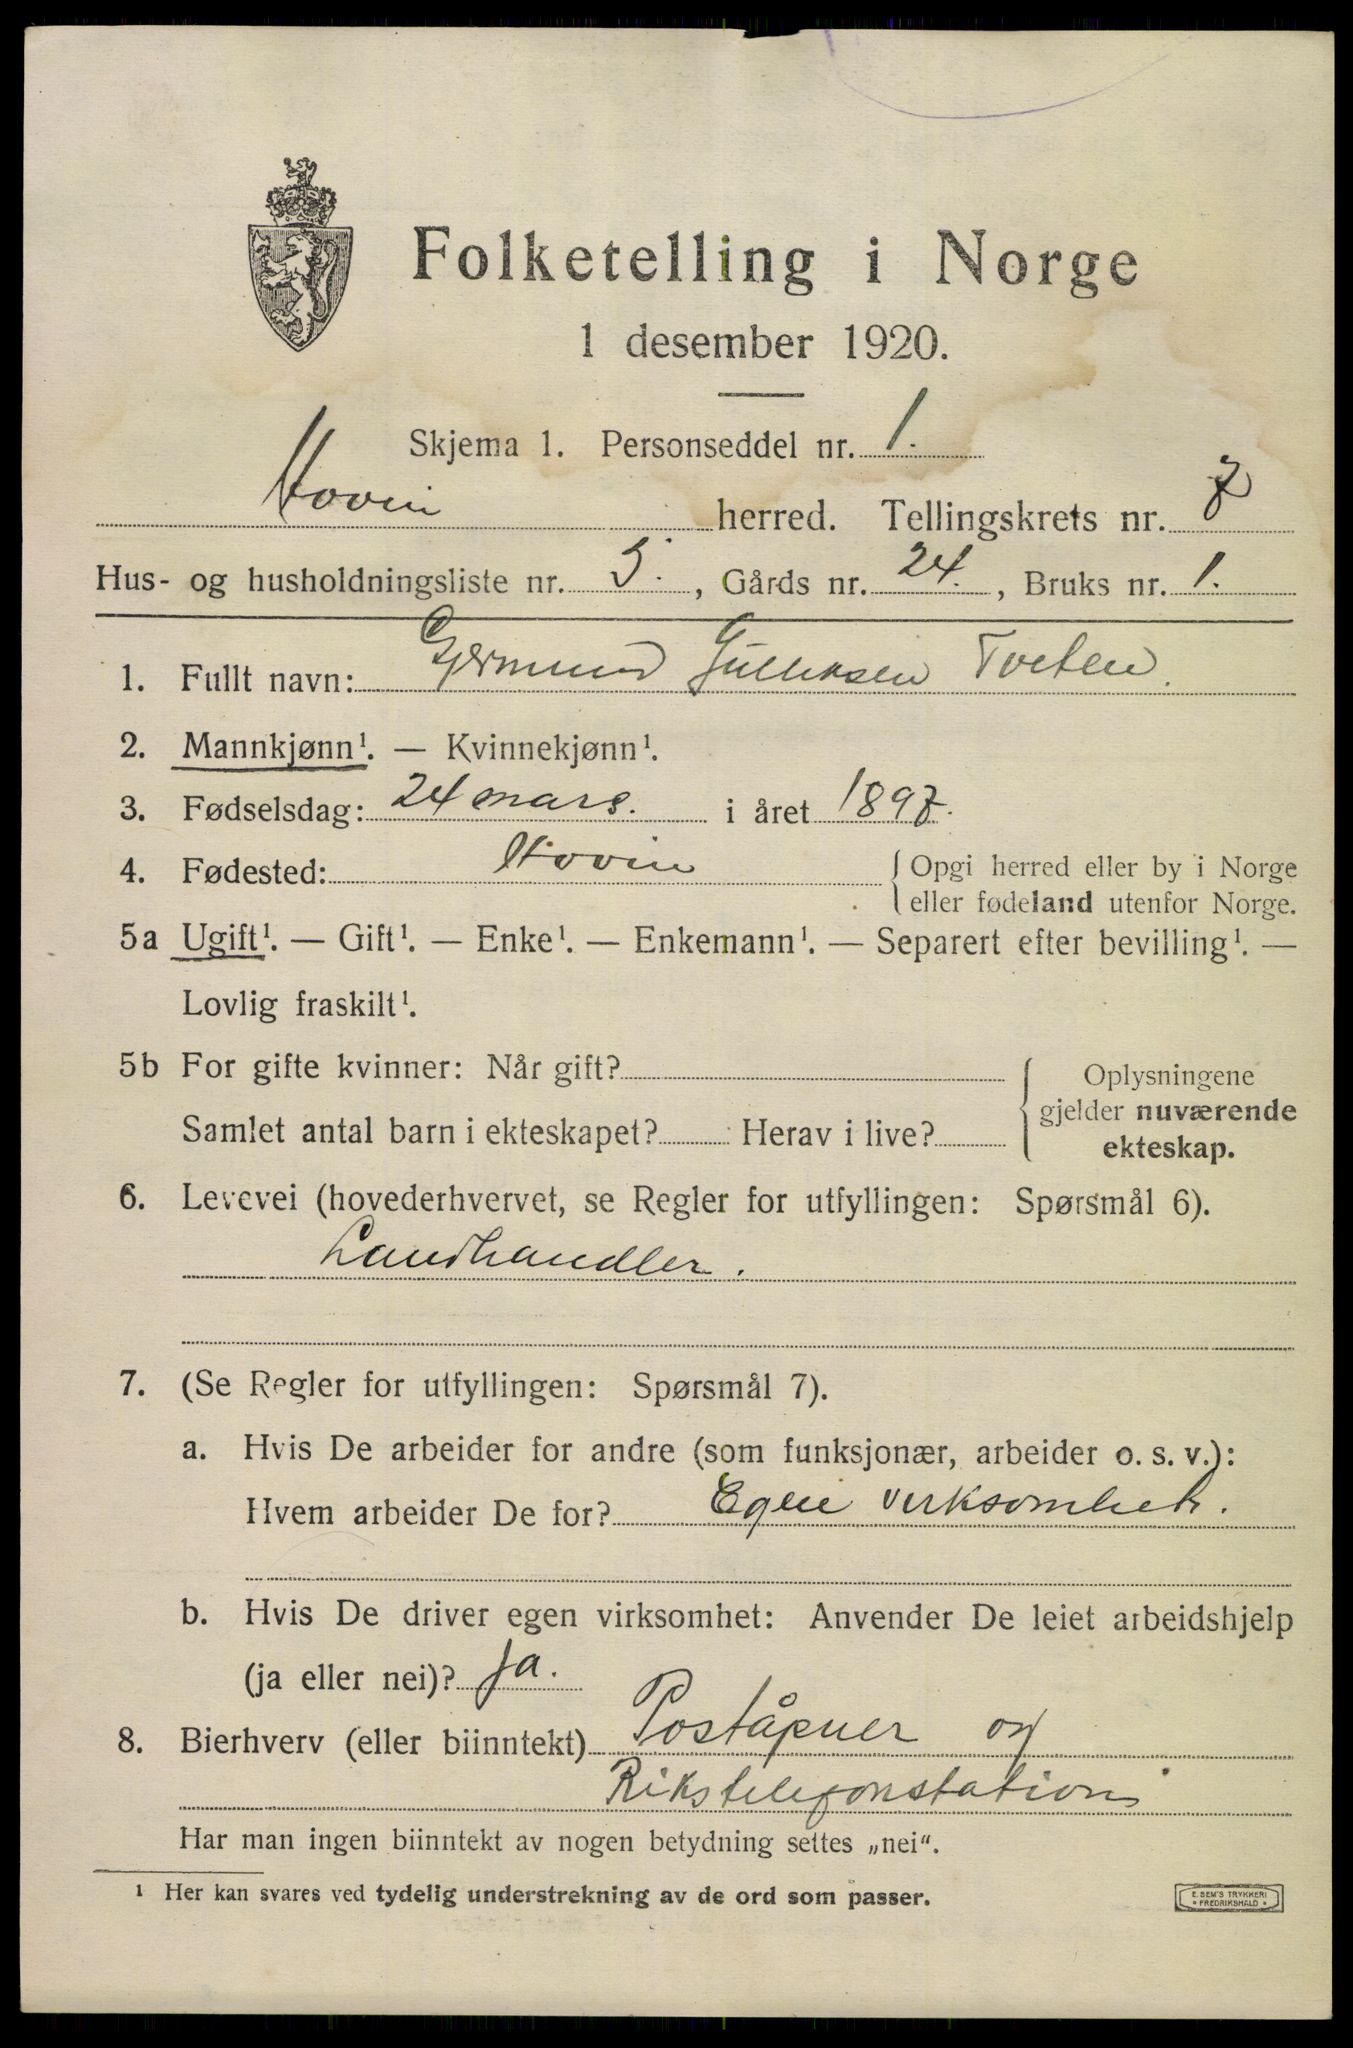 Folketelling i Norge
1 desember 1920.
Skjema 1. Personseddel nr. 1.
Hovin herred. Tellingskrets nr. 7
Hus- og husholdningsliste nr. 3., Gårds nr. 24., Bruks nr. 1.
1. Fullt navn: Gjermund Gulliksen Tveten.
2. Mannkjønn¹. — Kvinnekjønn¹.
3. Fødselsdag: 24 mars. i året 1897.
4. Fødested: Hovin { Opgi herred eller by i Norge
eller fødeland utenfor Norge.
5a Ugift¹. — Gift¹. — Enke¹. — Enkemann¹. — Separert efter bevilling¹. —
Lovlig fraskilt¹.
5b For gifte kvinner: Når gift?
Samlet antal barn i ekteskapet? Herav i live?
{ Oplysningene
gjelder nuværende
ekteskap.
6. Levevei (hovederhvervet, se Regler for utfyllingen: Spørsmål 6).
Landhandler.
7. (Se Regler for utfyllingen: Spørsmål 7).
a. Hvis De arbeider for andre (som funksjonær, arbeider o. s. v.):
Hvem arbeider De for? Egen virksomhet.
b. Hvis De driver egen virksomhet: Anvender De leiet arbeidshjelp
(ja eller nei)? ja.
8. Bierhverv (eller biinntekt) Poståpner og
Rikstelefonstation
Har man ingen biinntekt av nogen betydning settes „nei“.
¹ Her kan svares ved tydelig understrekning av de ord som passer.
E. SEM'S TRYKKERI
• FREDRIKSHALD •